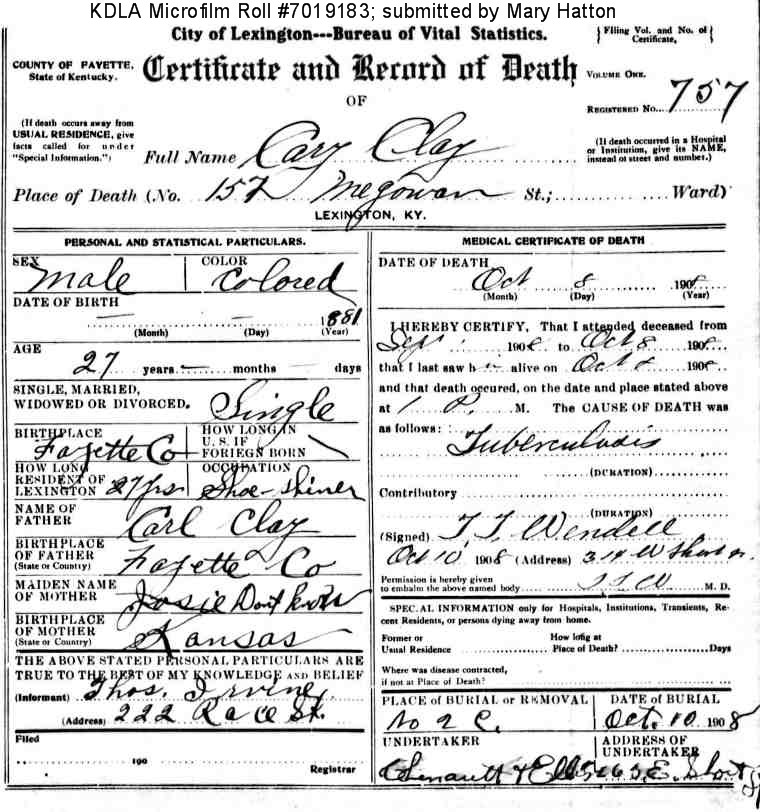 KDLA Microfilm Roll #7019183; submitted by Mary Hatton
City of Lexington---Bureau of Vital Statistics.
{ Filing Vol. and No. of Certificate, }
COUNTY OF FAYETTE,
State of Kentucky.
Certificate and Record of Death
VOLUME ONE.
OF
REGISTERED No. 757
(If death occurs away from
USUAL RESIDENCE, give
facts called for under
"Special Information.")
Full Name Cary Clay
(If death occurred in a Hospital
or Institution, give its NAME,
instead of street and number.)
Place of Death (No. 157 Megowan St.; Ward)
LEXINGTON, KY.
PERSONAL AND STATISTICAL PARTICULARS.
SEX Male
COLOR Colored
DATE OF BIRTH
— — 1881
(Month) (Day) (Year)
AGE
27 years — months — days
SINGLE, MARRIED,
WIDOWED OR DIVORCED. Single
BIRTHPLACE Fayette Co
HOW LONG IN
U. S. IF
FORIEGN BORN
HOW LONG
RESIDENT OF
LEXINGTON 27 yrs
OCCUPATION
Shoe-shiner
NAME OF
FATHER Carl Clay
BIRTHPLACE
OF FATHER
(State or Country) Fayette Co
MAIDEN NAME
OF MOTHER Josie Dont know
BIRTHPLACE
OF MOTHER
(State or Country) Kansas
THE ABOVE STATED PERSONAL PARTICULARS ARE
TRUE TO THE BEST OF MY KNOWLEDGE AND BELIEF
(Informant) Thos. Irvine
(Address) 222 Race St.
Filed
190
Registrar
MEDICAL CERTIFICATE OF DEATH
DATE OF DEATH
Oct 8 1908
(Month) (Day) (Year)
I HEREBY CERTIFY, That I attended deceased from
Sept 1908 to Oct 8 1908
that I last saw h alive on Oct 8 1908
and that death occured, on the date and place stated above
at 1 P. M. The CAUSE OF DEATH was
as follows:
Tuberculosis
(DURATION)
Contributory
(DURATION)
(Signed) T. T. Wendell
Oct 10 1908 (Address) 314 W Short St.
Permission is hereby given
to embalm the above named body T T W M. D.
SPECIAL INFORMATION only for Hospitals, Institutions, Transients, Re-
cent Residents, or persons dying away from home.
Former or
Usual Residence
How long at
Place of Death? Days
Where was disease contracted,
if not at Place of Death?
PLACE OF BURIAL or REMOVAL
No 2 C.
DATE OF BURIAL
Oct. 10 1908
UNDERTAKER
ADDRESS OF
UNDERTAKER
E. Short